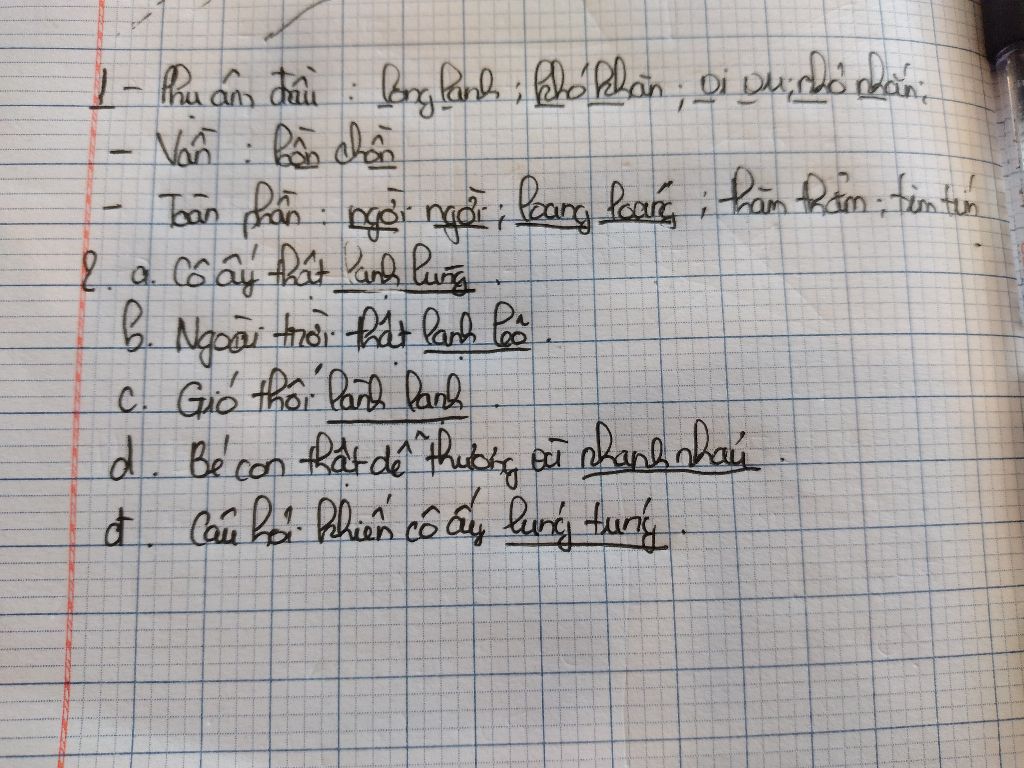 1 - Phụ âm đầu : Long lanh ; khó khăn ; oi ou ; nhỏ nhắn ;
- Vần : bồn chồn
- Toàn phần : ngời ngời ; loang loáng ; thăm thẳm ; tim tím
2. a. Cô ấy thật lạnh lùng .
b. Ngoài trời thật lạnh lẽo .
c. Gió thổi lành lạnh .
d. Bé con thật dễ thương và nhanh nhảy .
đ. Câu hỏi khiến cô ấy lúng túng .